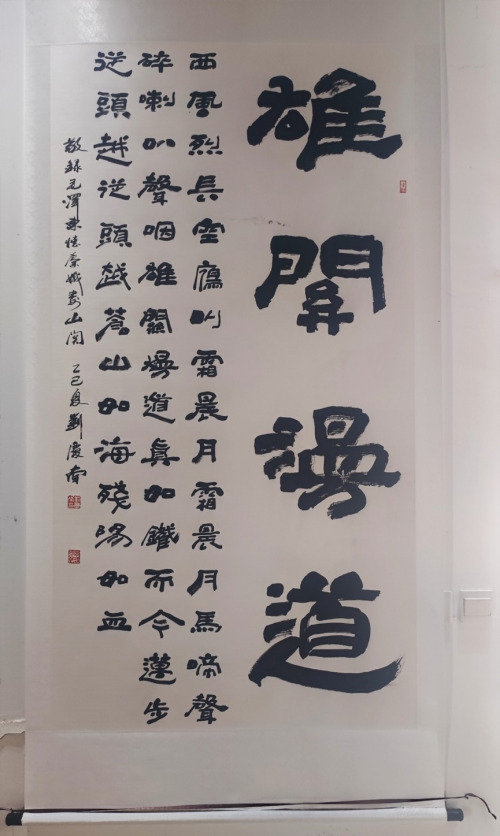 雄關漫道
西風烈長空鴈叫霜晨月霜晨月馬啼聲
碎喇叭聲咽雄關漫道真如鐵而今邁步
從頭越從頭越蒼山如海殘陽如血
敬録毛澤東憶秦娥婁山関 乙巳夏劉慶南